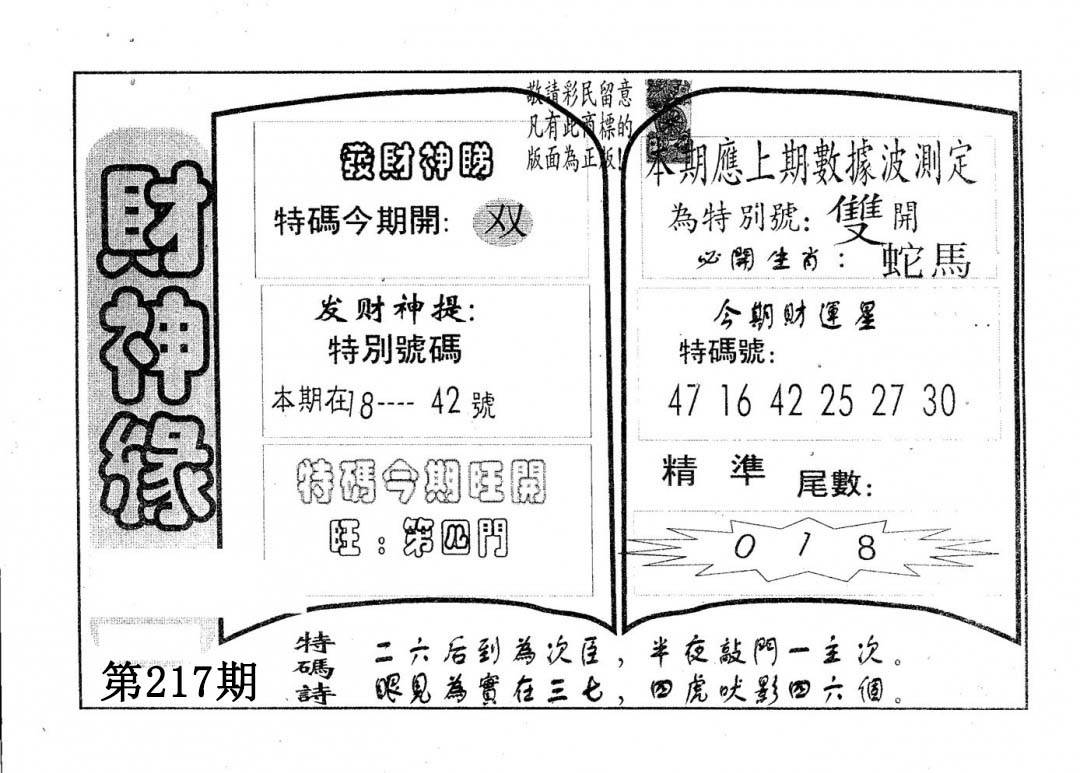 財神緣
第217期
敬請彩民留意
凡有此商標的
版面為正版!
發財神睇
特碼今期開: 双
发财神提:
特別號碼
本期在18---- 42號
特碼今期旺開
旺:第四門
本期應上期數據波測定
為特別號: 雙開
必開生肖: 蛇馬
今期財運星
特碼號:
47 16 42 25 27 30
精準 尾數:
0 1 8
特碼詩
二六后到為次臣,半夜敲門一主次。
眼見為實在三七,四虎吠影四六個。